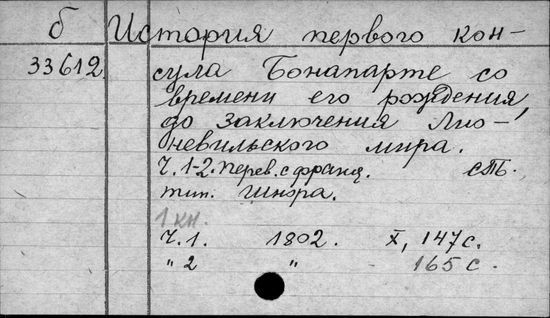 б История первого кон-
33612 сула Бонапарте со
времени его рождения,
до заключения Лю-
невильского мира.
Ч. 1-2. Перев. с франц. СПБ.
тип. Шнора.
1 кн.
Ч. 1. 1802. X, 147 с.
" 2 " 165 с.